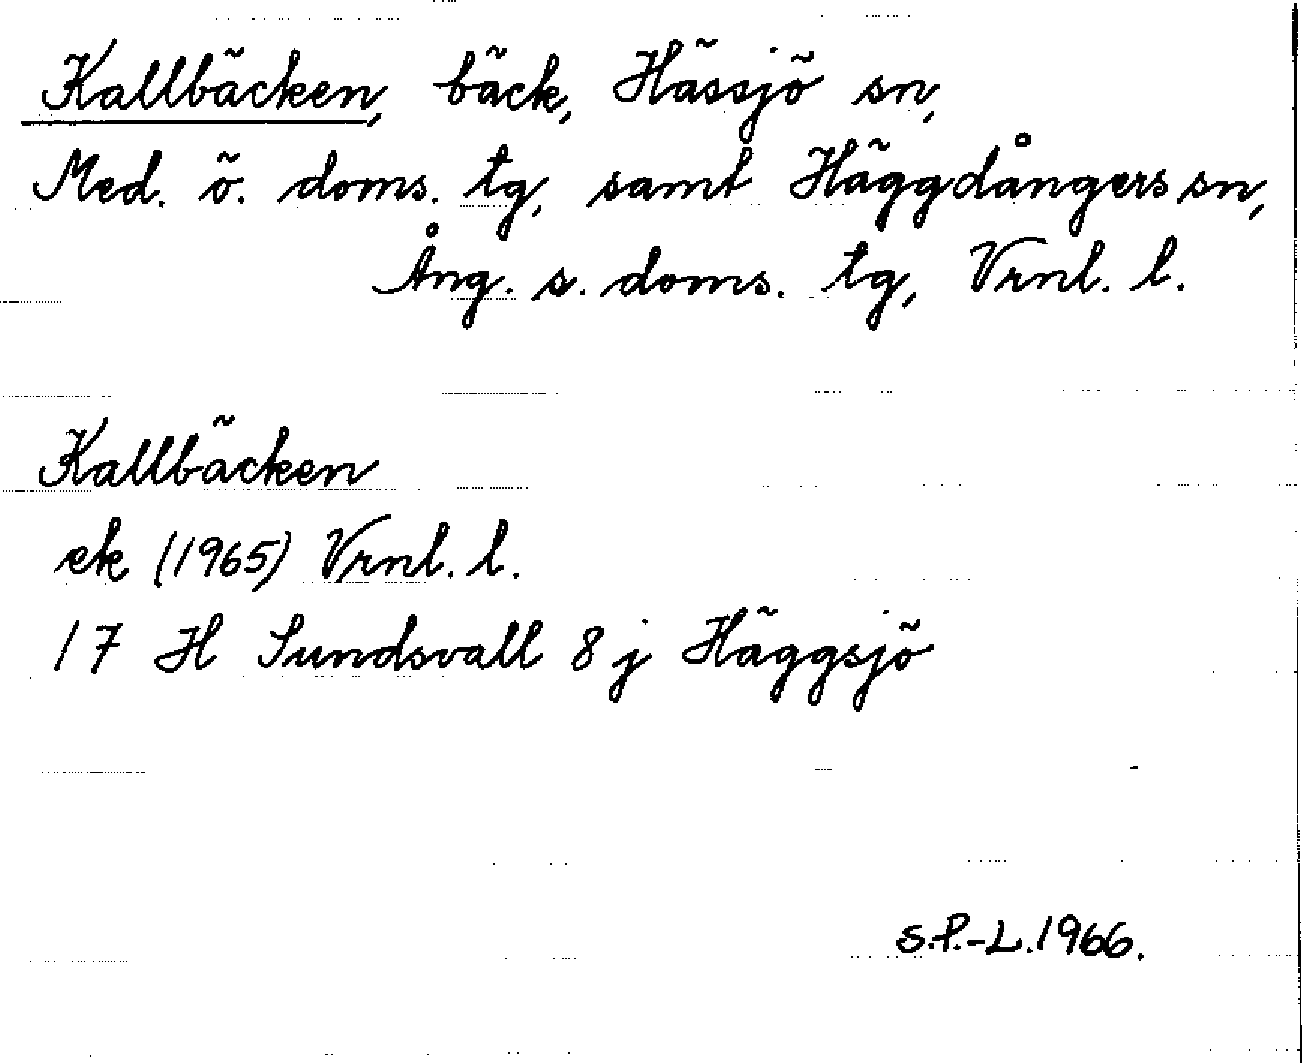 Kallbäcken, bäck, Hässjö sn,
Med. ö. doms. tg, samt Häggdångers sn,
Ång. s. doms. tg, Vrnl. l.
Kallbäcken
ek (1965) Vrnl. l.
17 H Sundsvall 8 j Häggsjö
S.P.-L. 1966.